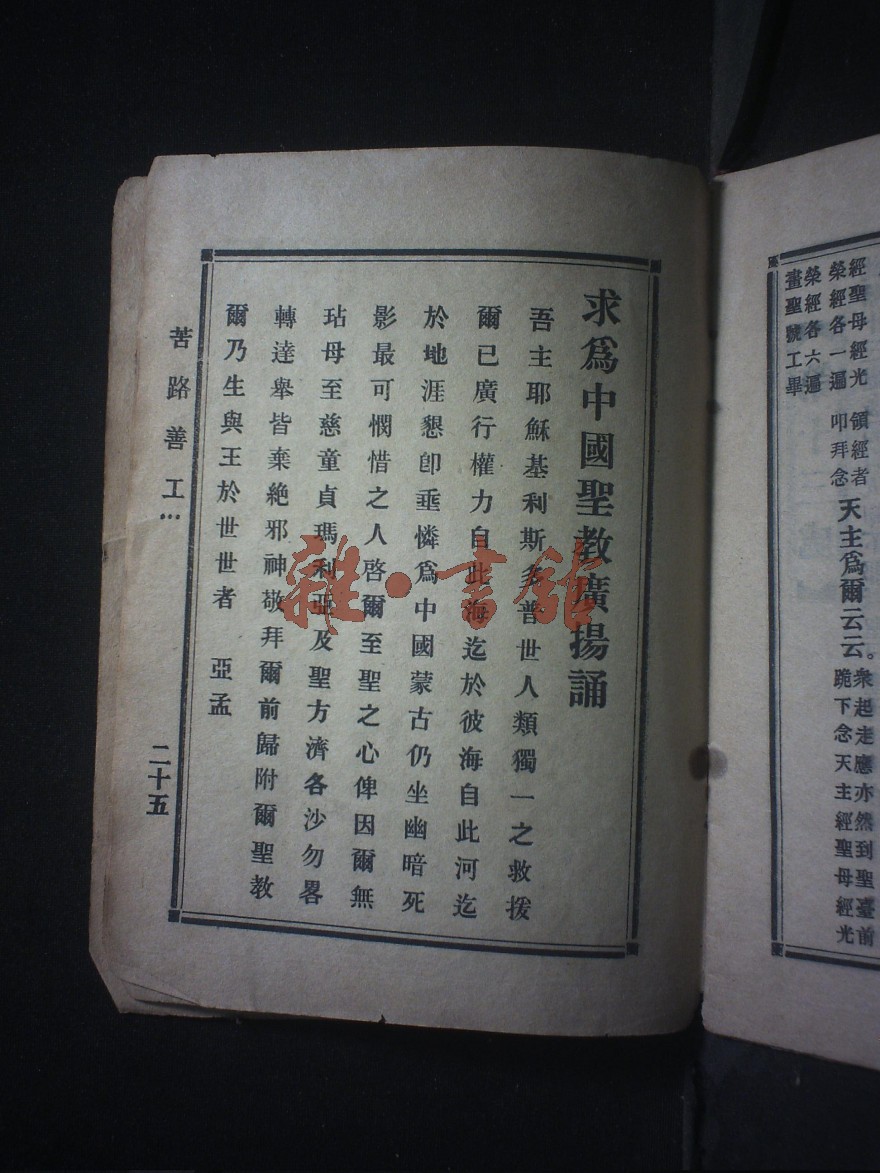 經聖母經光
榮經各一遍
榮經各六遍
畫聖號工畢
領經者
叩拜念
天主爲爾云云。
衆起走應亦然到聖臺前
跪下念天主經聖母經光
求爲中國聖教廣揚誦
吾主耶穌基利斯多普世人類獨一之救援
爾已廣行權力自此海迄於彼海自此河迄
於地涯懇卽垂憐爲中國蒙古仍坐幽暗死
影最可憫惜之人啓爾至聖之心俾因爾無
玷母至慈童貞瑪利亞及聖方濟各沙勿畧
轉達舉皆棄絕邪神敬拜爾前歸附爾聖教
爾乃生與王於世世者 亞孟
苦路善工…
二十五
雜·書館